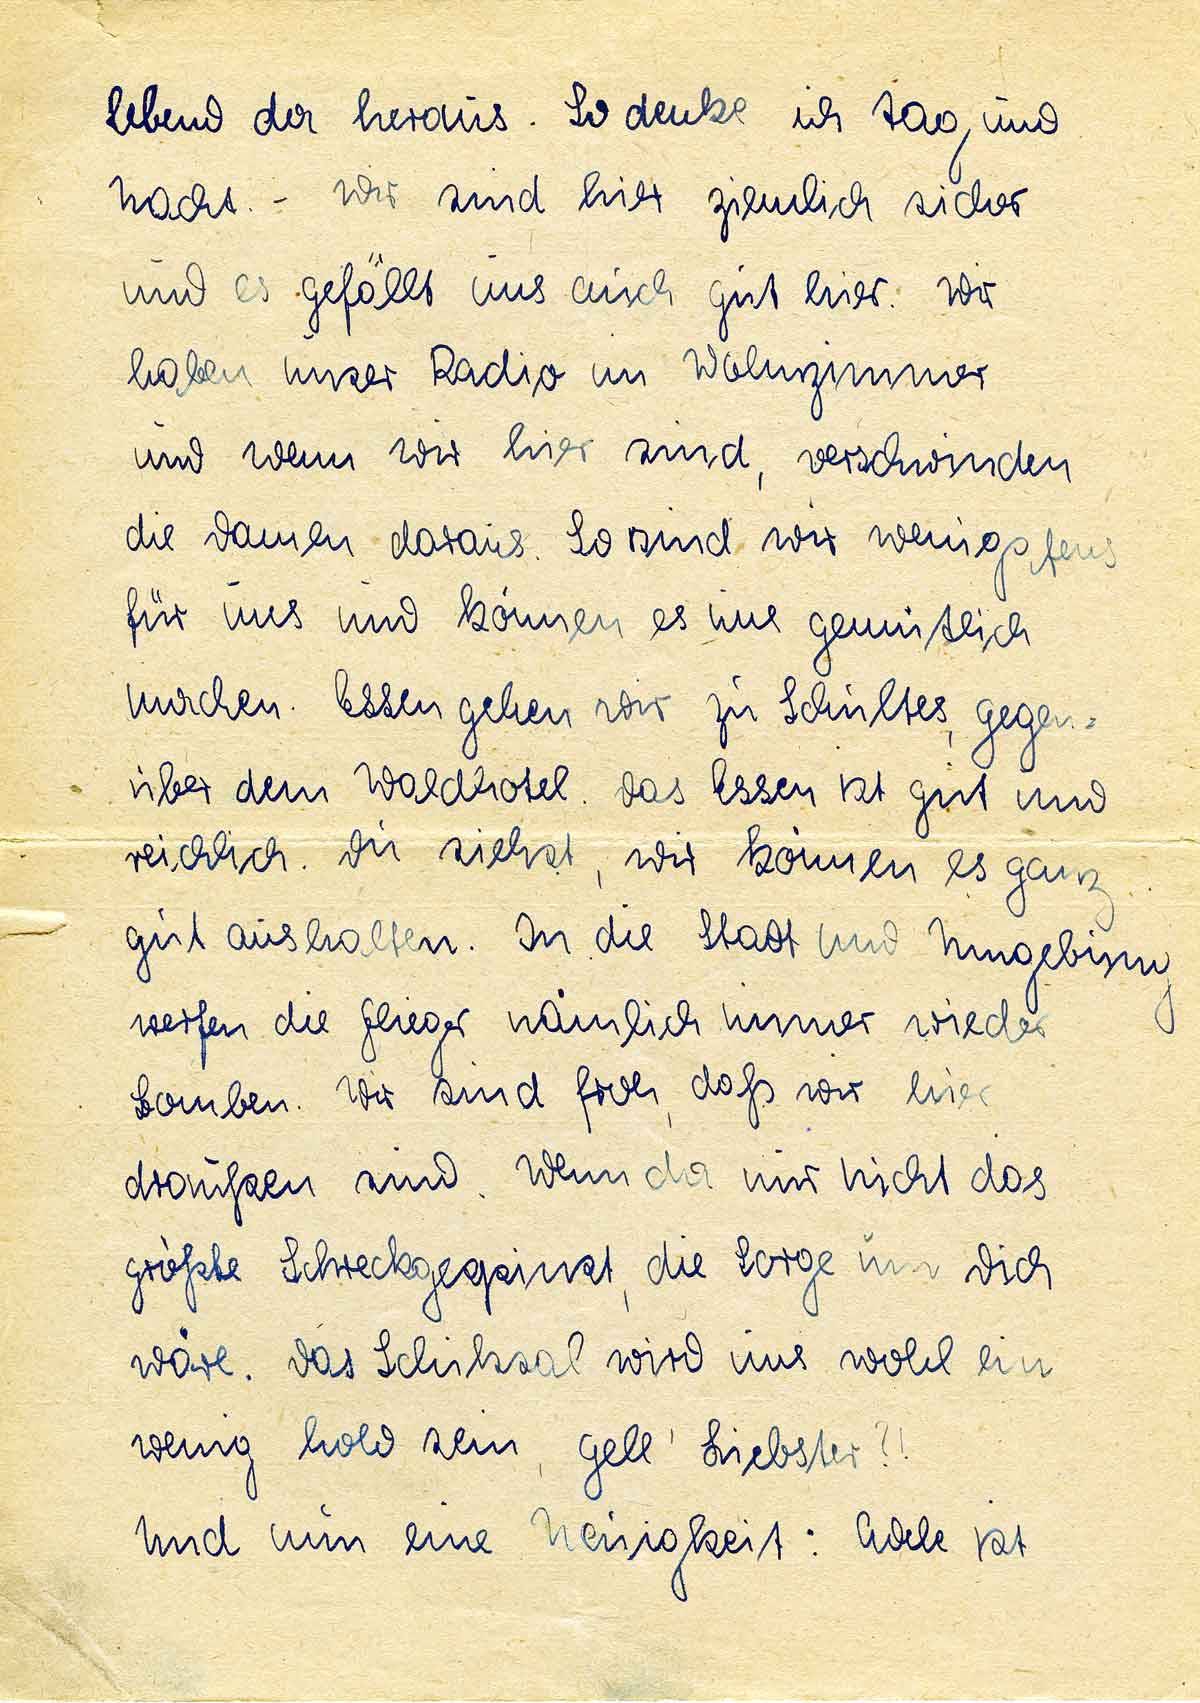 lebend da heraus. So denke ich Tag und
Nacht. - Wir sind hier ziemlich sicher
und es gefällt uns auch gut hier. Wir
haben unser Radio im Wohnzimmer
und wenn wir hier sind, verschwinden
die Damen daraus. So sind wir wenigstens
für uns und können es uns gemütlich
machen. Essen gehen wir zu Schultes, gegen-
über dem Waldhotel. Das Essen ist gut und
reichlich. Du siehst, wir können es ganz
gut aushalten. In die Stadt und Umgebung
werfen die Flieger nämlich immer wieder
Bomben. Wir sind froh, daß wir hier
draußsen sind. Wenn da nur nicht das
größte Schreckgespinst, die Sorge um Dich
wäre. Das Schiksal wird uns wohl ein
wenig hold sein, gell' Liebster?!
Und nun eine Neuigkeit: Adele ist